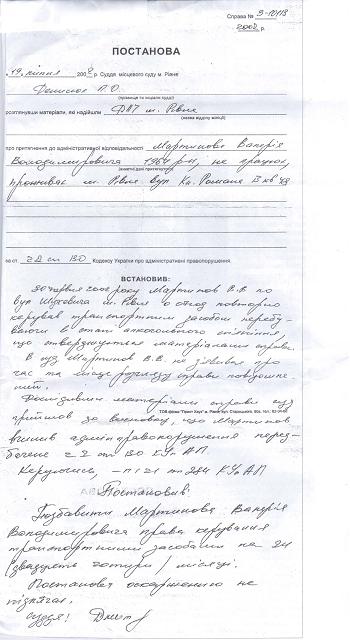 Справа № 3-10113
2008 р.
ПОСТАНОВА
19 липня 2008 р. Суддя місцевого суду м. Рівне
Денисюк П.О.
(прізвище та ініціали судді)
розглянувши матеріали, які надійшли ДАІ м. Рівне
(назва відділу міліції)
про притягнення до адміністративної відповідальності Мартинова Валерія
Володимировича 1964 р.н, не працює,
проживає м. Рівне вул Кн. Романа
за ст. 2 ст 130 Кодексу України про адміністративні правопорушення.
ВСТАНОВИВ:
30 червня 2008 року Мартинов В.В по
вул м. Рівне о повторно
керував транспортним засобом перебу-
ваючи в стані алкогольного сп'яніння,
що стверджується матеріалами справи.
В суд Мартинов В.В. не з'явився про
час та місце розгляду справи повідомле-
ний.
Дослідивши матеріали справи суд
прийшов до висновку, що Мартинов
вчинив адмінправопорушення перед-
бачене ч 2 ст 130 КУпАП
Керуючись, ст 284 КУпАП
Постановив:
Позбавити Мартинова Валерія
Володимировича права керування
транспортними засобами на 24
двадцять чотири / місяці.
Постанова оскарженню не
підлягає.
Суддя: